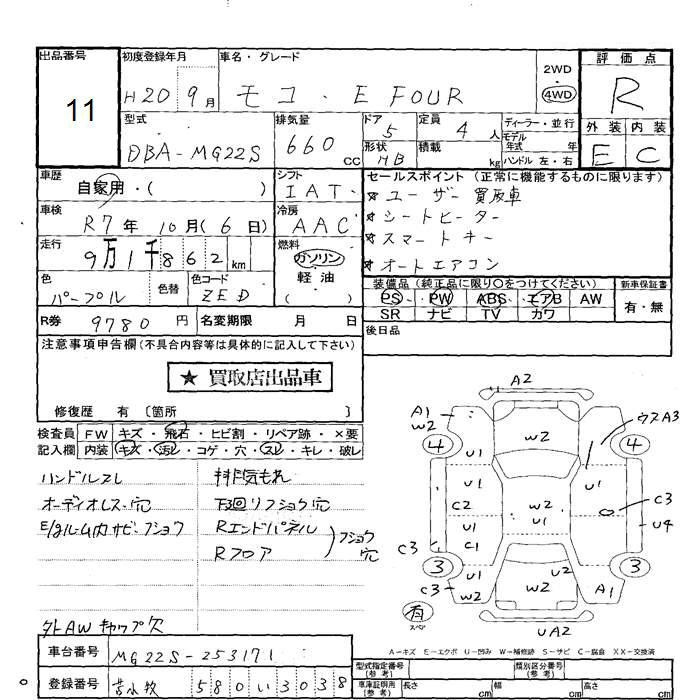 出品番号 初度登録年月 車名・グレード 評価点
11
H20 9月 モコ・E FOUR 2WD 4WD R
型式 排気量 ドア 定員 ディーラー・並行 外装 内装
DBA-MG22S 660cc 5 4人 モデル年式 年 E C
形状 HB 積載 kg ハンドル 左・右
車歴 自家用・( ) シフト IAT セールスポイント(正常に機能するものに限ります)
★ユーザー買取車
車検 R7年10月(6日) 冷房 AAC ★シートヒーター
★スマートキー
走行 9万1千862km 燃料 ガソリン 軽油 ( ) ★オートエアコン
色 パープル 色替 色コード ZED
装備品(純正品に限り○をつけてください) 新車保証書
PS・PW・ABS・エアB AW 有・無
SR ナビ TV カワ
R券 9780円 名変期限 月 日 後日品
注意事項申告欄(不具合内容等は具体的に記入して下さい)
★ 買取店出品車
修復歴 有 〔箇所 〕
検査員記入欄 FW キズ・飛石・ヒビ割・リペア跡・×要
内装 キズ・汚レ・コゲ・穴・スレ・キレ・破レ
ハンドルスレ 排気もれ
オーディオレス・穴 下回りフショウ穴
E/gルーム内サビ・フショウ Rエンドパネル
Rフロア フショウ穴
外AWキャップ欠
A2
A1 W2 W2 ウスA3
4 4
U1 U1
U1 U1
C2 W2 U1 C3
U1 U4
C3 C1
3 3
U1 U2
C3 W2 W2 A1
有 スペア UA2
A-キズ E-エクボ U-凹み W-補修跡 S-サビ C-腐食 XX-交換済
車台番号 MG22S-253171 型式指定番号(参考) 類別区分番号(参考)
登録番号 苫小牧 580い3038 車庫証明用(参考) 長さ cm 幅 cm 高さ cm